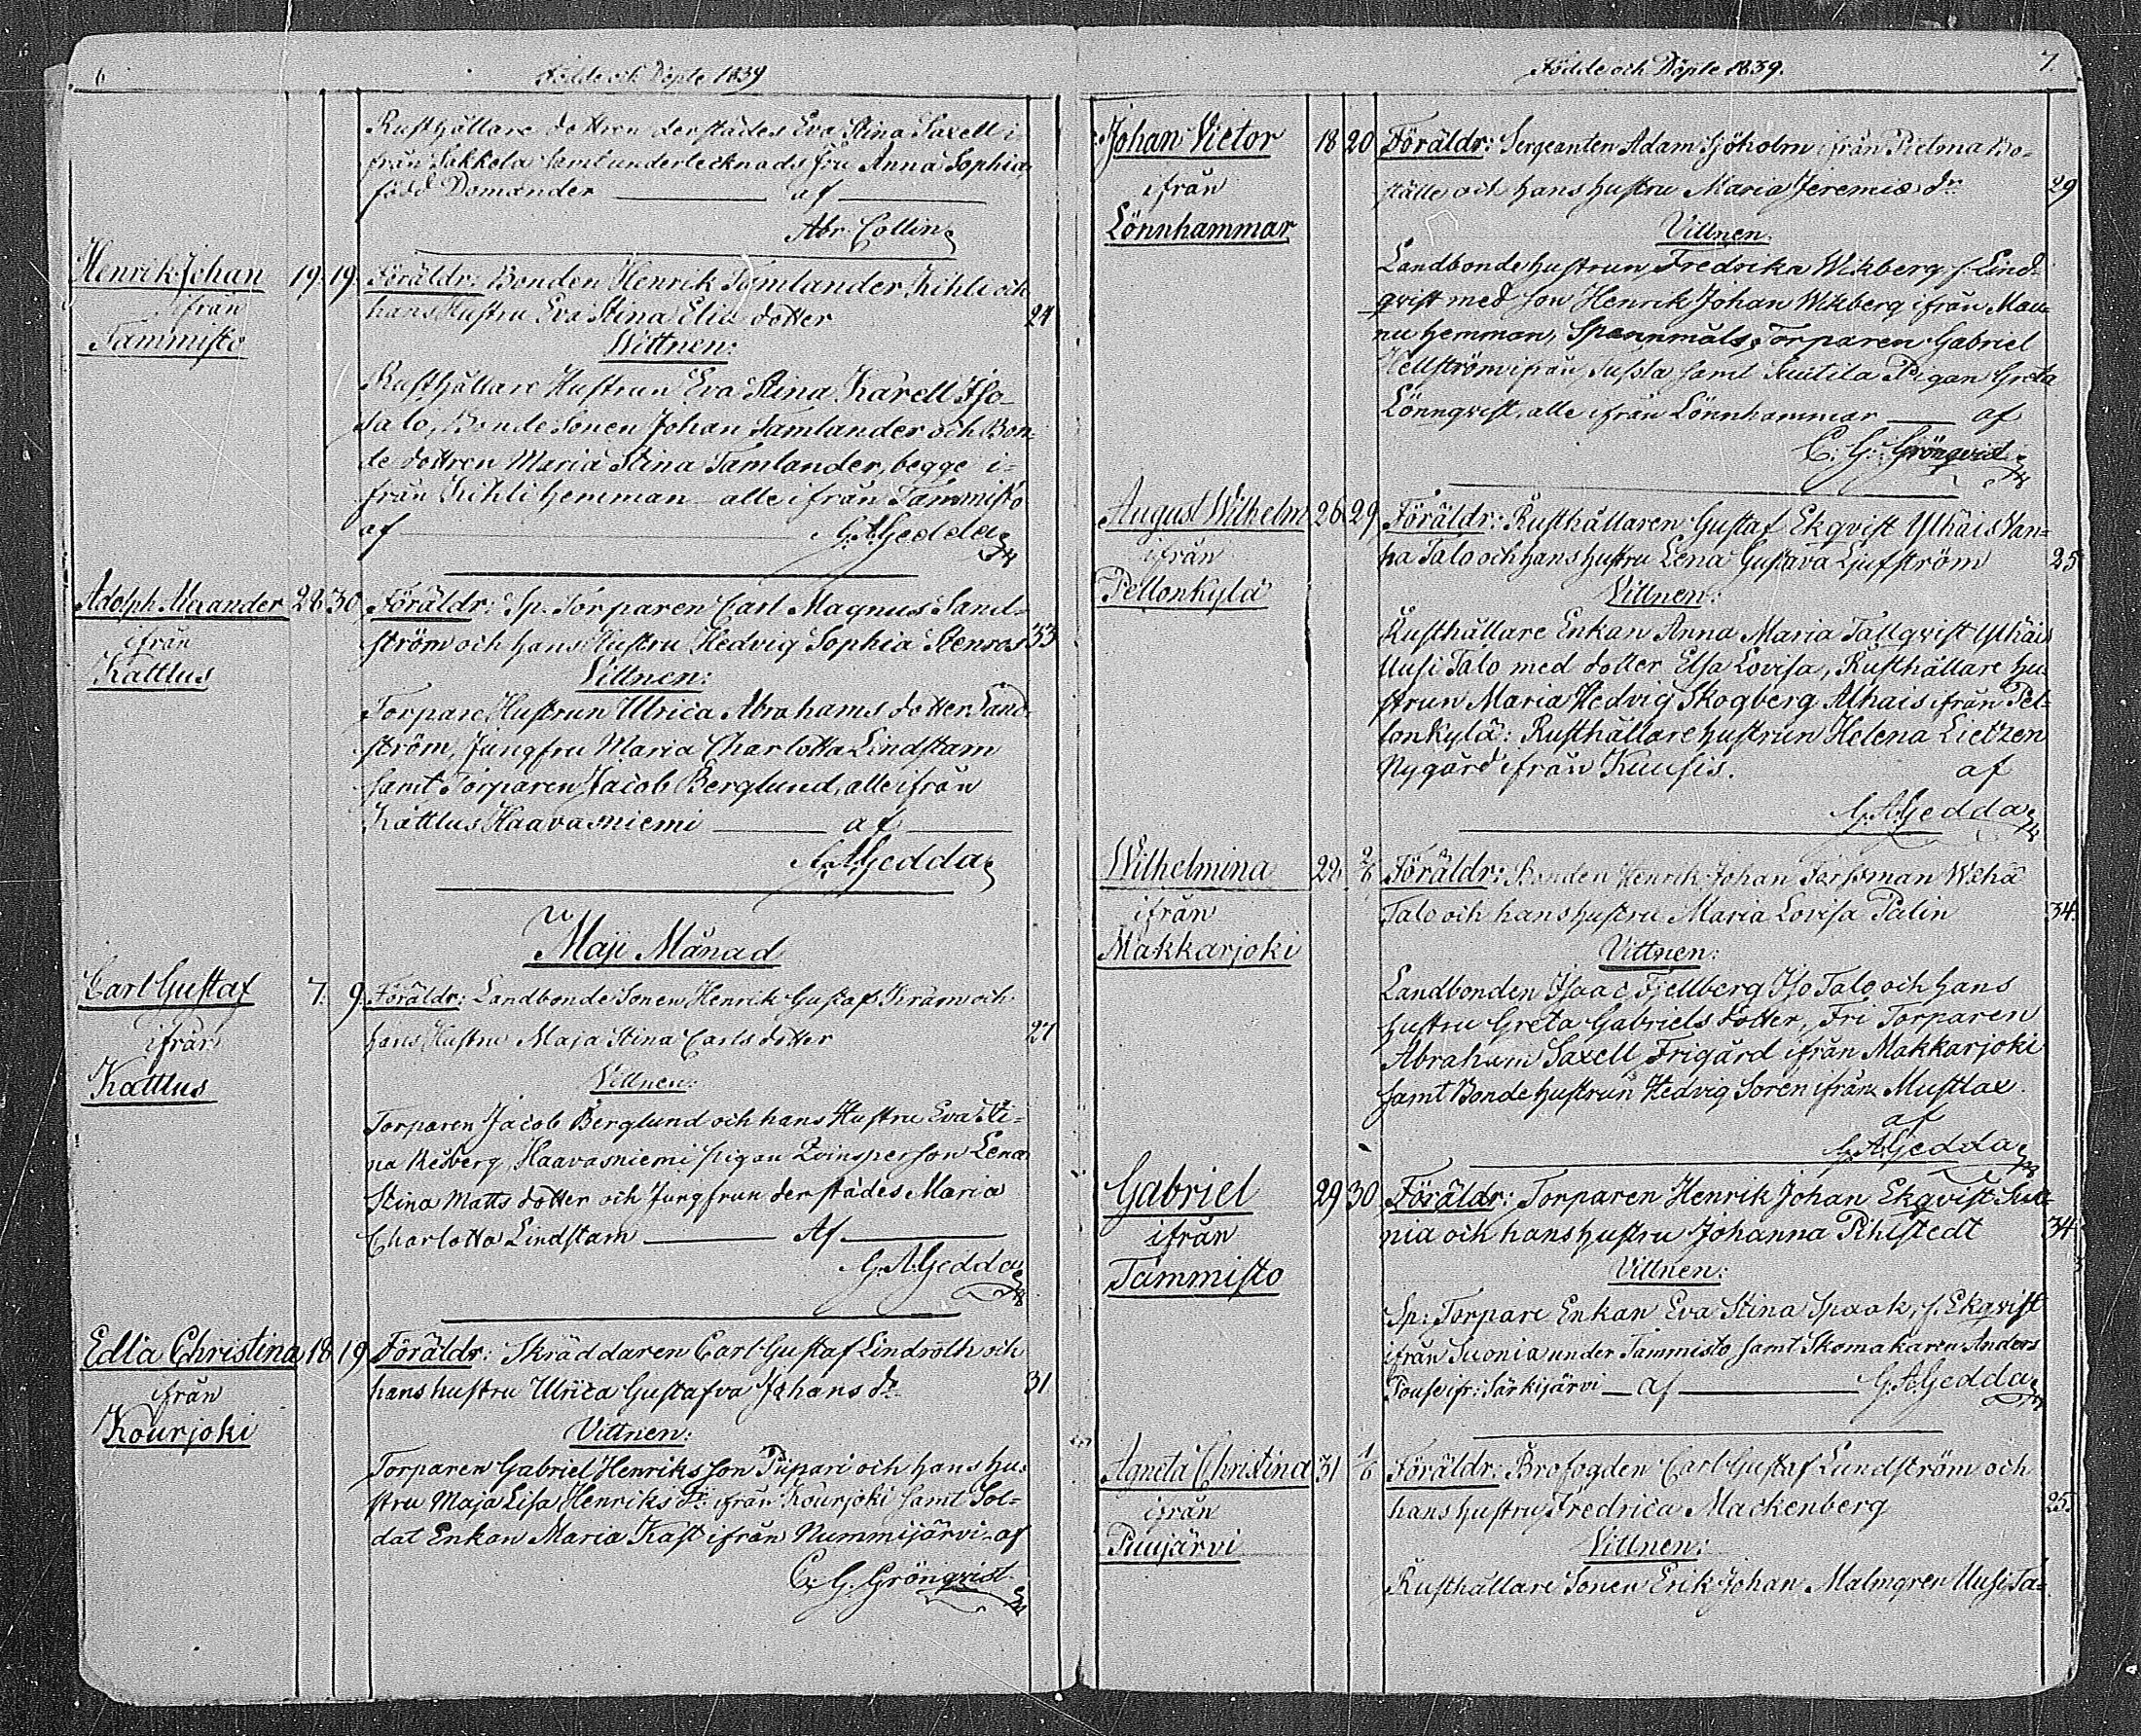 6
Födde och Döpte 1839
Rusthållare dottren derstädes Eva Stina Saxell i-
från Sakkola samt undertecknads fru Anna Sophia
född Domander af
Abr. Collin
Henrik Johan 19. 19. Föräldr: Bonden Henrik Tamlander Kihli och
ifrån hans Hustru Eva Stina Elia dotter 24
Tammisto
Wittnen:
Rusthållare Hustrun Eva Stina Karell Iso-
talo, Bonde Sonen Johan Tamlander och Bon-
de dottren Maria Stina Tamlander, begge i-
från Kihli hemman alle ifrån Tammisto
af G. A. Gedda
Adolph Alexander 28. 30. Föräldr: Sp. Torparen Carl Magnus Sand-
ifrån ström och hans Hustru Hedvig Sophia Stenros 33
Kattlus
Vittnen:
Torpare Hustrun Ulrica Abrahams dotter Sand-
ström, Jungfru Maria Charlotta Lindstam
samt Torparen Jacob Berglund, alle ifrån
Kattlus Haavasniemi af
G. A. Gedda
Maji Månad
Carl Gustaf 7. 9. Föräldr: Landbonde Sonen Henrik Gustafs och
ifrån hans Hustru Maja Stina Carls dotter 27
Kattlus
Vittnen:
Torparen Jacob Berglund och hans Hustru Eva Sti-
na Haavasniemi pigan Qvinsperson Lena
Stina Matts dotter och Jungfrun derstädes Maria
Charlotta Lindstam Af
G. A. Gedda
Edla Christina 18. 19. Föräldr: Skräddaren Carl Gustaf Lindroth och
ifrån hans hustru Ulrica Gustafva Johans dr 31
Kourjoki
Vittnen:
Torparen Gabriel Henriksson Piipari och hans hu-
stru Maja Lisa Henriks dr. ifrån Kourjoki samt Sol-
dat Enkan Maria Kast ifrån Nummijärvi af
C. G. Grönqvist
Födde och Döpte 1839. 7.
Johan Victor 18 20 Föräldr: Sergeanten Adam Sjöholm ifrån Bo-
ifrån ställe och hans hustru Maria Jeremiæ dr 29
Lönnhammar
Vittnen.
Landbonde hustrun Fredrika Wikberg f. Lind-
qvist med son Henrik Johan Wikberg ifrån Mau-
nu hemman, Spannmåls Torparen Gabriel
Hellström ifrån samt Pigan Greta
Lönnqvist, alle ifrån Lönnhammar af
C. G. Grönqvist
August Wilhelm 26. 29. Föräldr: Rusthållaren Gustaf Ekqvist Ylhäis Van-
ifrån ha Talo och hans hustru Lena Gustava Ljufström 25
Pellonkylä
Vittnen:
Rusthållare Enkan Anna Maria Tallqvist Ylhäis
Uusi Talo med dotter Elsa Lovisa, Rusthållare hu-
strun Maria Hedvig Skogberg Alhais ifrån Pel-
lonkylä: Rusthållare hustrun Helena Lietzen
Nygård ifrån Kuusis. af
G. A. Gedda
Wilhelmina 28. 2/6 Föräldr: Bonden Henrik Johan Forssman Wähä
ifrån Talo och hans hustru Maria Lovisa Palin 34.
Makkarjoki
Vittnen:
Landbonden Isaac Fjellberg Iso Talo och hans
hustru Greta Gabriels dotter, Fri Torparen
Abraham Saxell Frigård ifrån Makkarjoki
samt Bonde hustrun Hedvig Soren ifrån Mustlax.
af
G. A. Gedda
Gabriel 29 30 Föräldr: Torparen Henrik Johan Ekqvist Suo-
ifrån nia och hans hustru Johanna Pihlstedt 34
Tammisto
Vittnen:
Sp: Torpare Enkan Eva Stina Spaak, f. Ekqvist
ifrån Suonia under Tammisto samt Skomakaren Anders
ifr: Särkijärvi af G. A. Gedda
Agneta Christina 31 1/6 Föräldr: Brofogden Carl Gustaf Lundström och
ifrån hans hustru Fredrica Mackenberg 25.
Puujärvi
Vittnen:
Rusthållare Sonen Erik Johan Malmgren Uusi Ta-